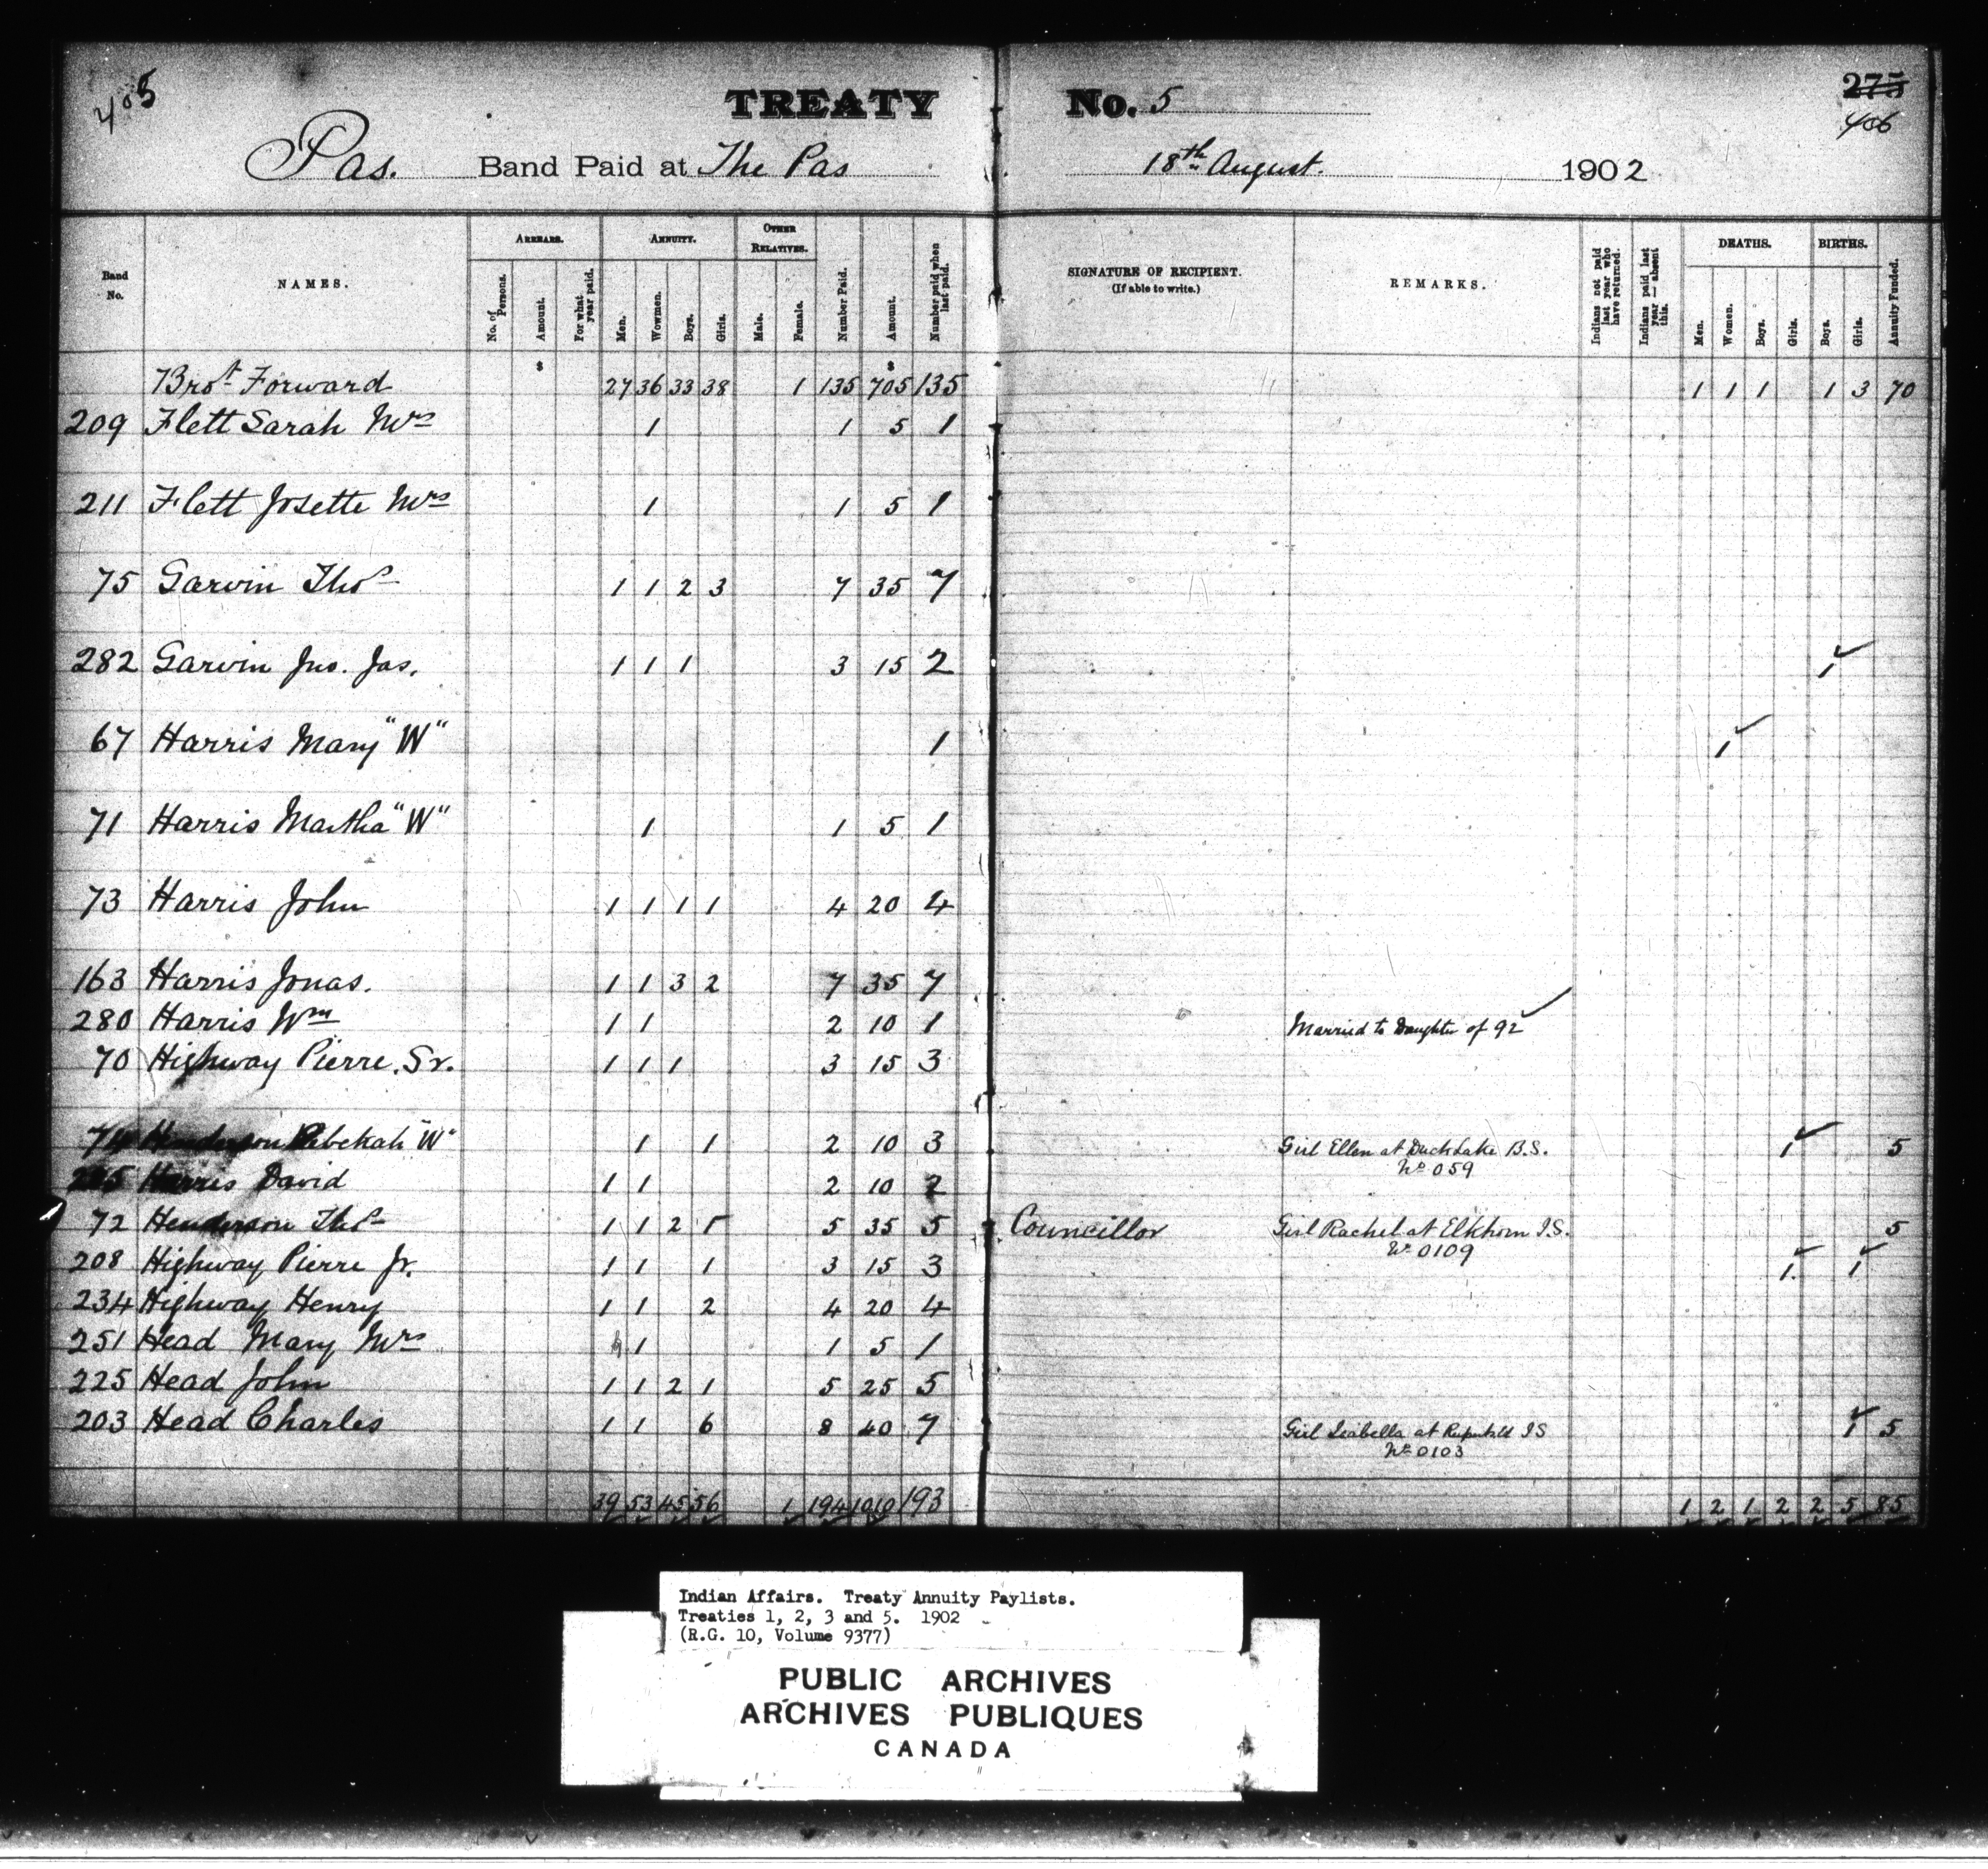 405
TREATY No. 5
275
406
Pas. Band Paid at The Pas 18th August. 1902
Band No.
NAMES.
ARREARS.
No. of Persons.
Amount.
For what year paid.
ANNUITY.
Men.
Wowmen.
Boys.
Girls.
OTHER RELATIVES.
Male.
Female.
Number Paid.
Amount.
Number paid when last paid.
SIGNATURE OF RECIPIENT.
(If able to write.)
REMARKS.
Indians not paid last year who have returned.
Indians paid last year — absent this.
DEATHS.
Men.
Women.
Boys.
Girls.
BIRTHS.
Boys.
Girls.
Annuity Funded.
$ $
Brot Forward 27 36 33 38 1 135 705 135 1 1 1 1 3 70
209 Flett Sarah Mrs 1 1 5 1
211 Flett Josette Mrs 1 1 5 1
75 Garvin Thos 1 1 2 3 7 35 7
282 Garvin Jno. Jas. 1 1 1 3 15 2 1
67 Harris Mary "W" 1 1
71 Harris Martha "W" 1 1 5 1
73 Harris John 1 1 1 1 4 20 4
163 Harris Jonas. 1 1 3 2 7 35 7
280 Harris Wm 1 1 2 10 1 Married to Daughter of 92
70 Highway Pierre. Sr. 1 1 1 3 15 3
74 Henderson Rebekah "W" 1 1 2 10 3 Girl Ellen at Duck Lake B.S. 1 5
No 059
Harris David 1 1 2 10 2
72 Henderson Thos 1 1 2 1 5 35 5 Councillor Girl Rachel at Elkhorn I.S. 5
No 0109
208 Highway Pierre Jr. 1 1 1 3 15 3 1 1
234 Highway Henry 1 1 2 4 20 4
251 Head Mary Mrs 1 1 5 1
225 Head John 1 1 2 1 5 25 5
203 Head Charles 1 1 6 8 40 7 Girl Isabella at I S 1 5
No 0103
39 53 45 56 1 194 1010 193 1 2 1 2 2 5 85
Indian Affairs. Treaty Annuity Paylists.
Treaties 1, 2, 3 and 5. 1902
(R.G. 10, Volume 9377)
PUBLIC ARCHIVES
ARCHIVES PUBLIQUES
CANADA